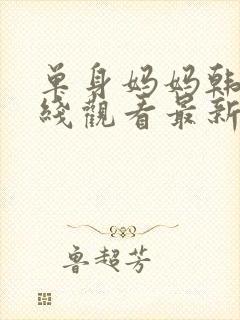 单身妈妈韩
线观看最新
鲁超芳